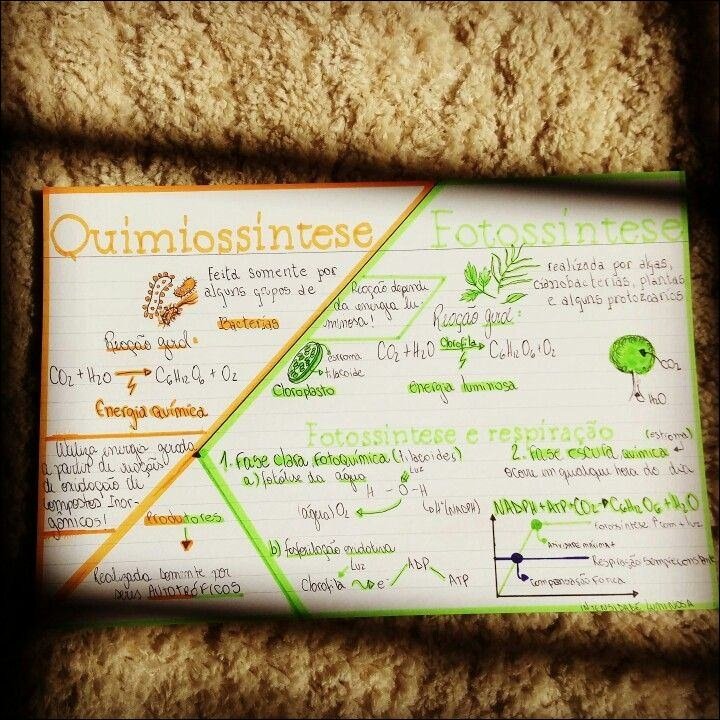 Quimiossíntese
Feita somente por
alguns grupos de
Bactérias
Reação geral:
CO2 + H2O → C6H12O6 + O2
Energia química
Utiliza energia gerada
a partir de reações
de oxidação de
compostos Inor-
gânicos!
Produtores
Realizada somente por
seus AUTOTRÓFICOS
Fotossíntese
realizada por algas,
cianobactérias, plantas
e alguns protozoários
Reação depende
da energia lu-
minosa!
Reação geral:
CO2 + H2O Clorofila → C6H12O6 + O2
energia luminosa
estroma
tilacoide
Cloroplasto
CO2
H2O
Fotossíntese e respiração
1. Fase clara fotoquímica (tilacoides)
a) fotólise da água
Luz
H - O - H
(água) O2
(NADPH)
b) fosforilação
Luz
Clorofila e- ADP ATP
2. Fase escura química (estroma)
ocore em qualquer hora do dia
NADPH + ATP + CO2 → C6H12O6 + H2O
fotossíntese + luz
Atividade máxima
Respiração sempre constante
Compensação Fótica
INTENSIDADE LUMINOSA